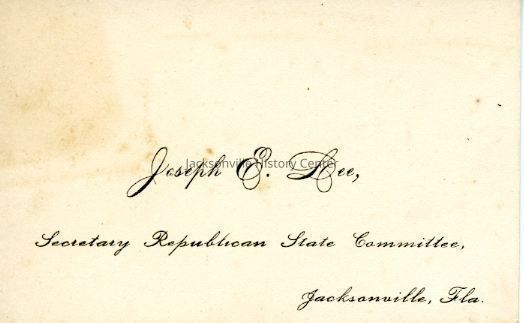 Jacksonville History Center
Joseph E. Lee,
Secretary Republican State Committee,
Jacksonville, Fla.